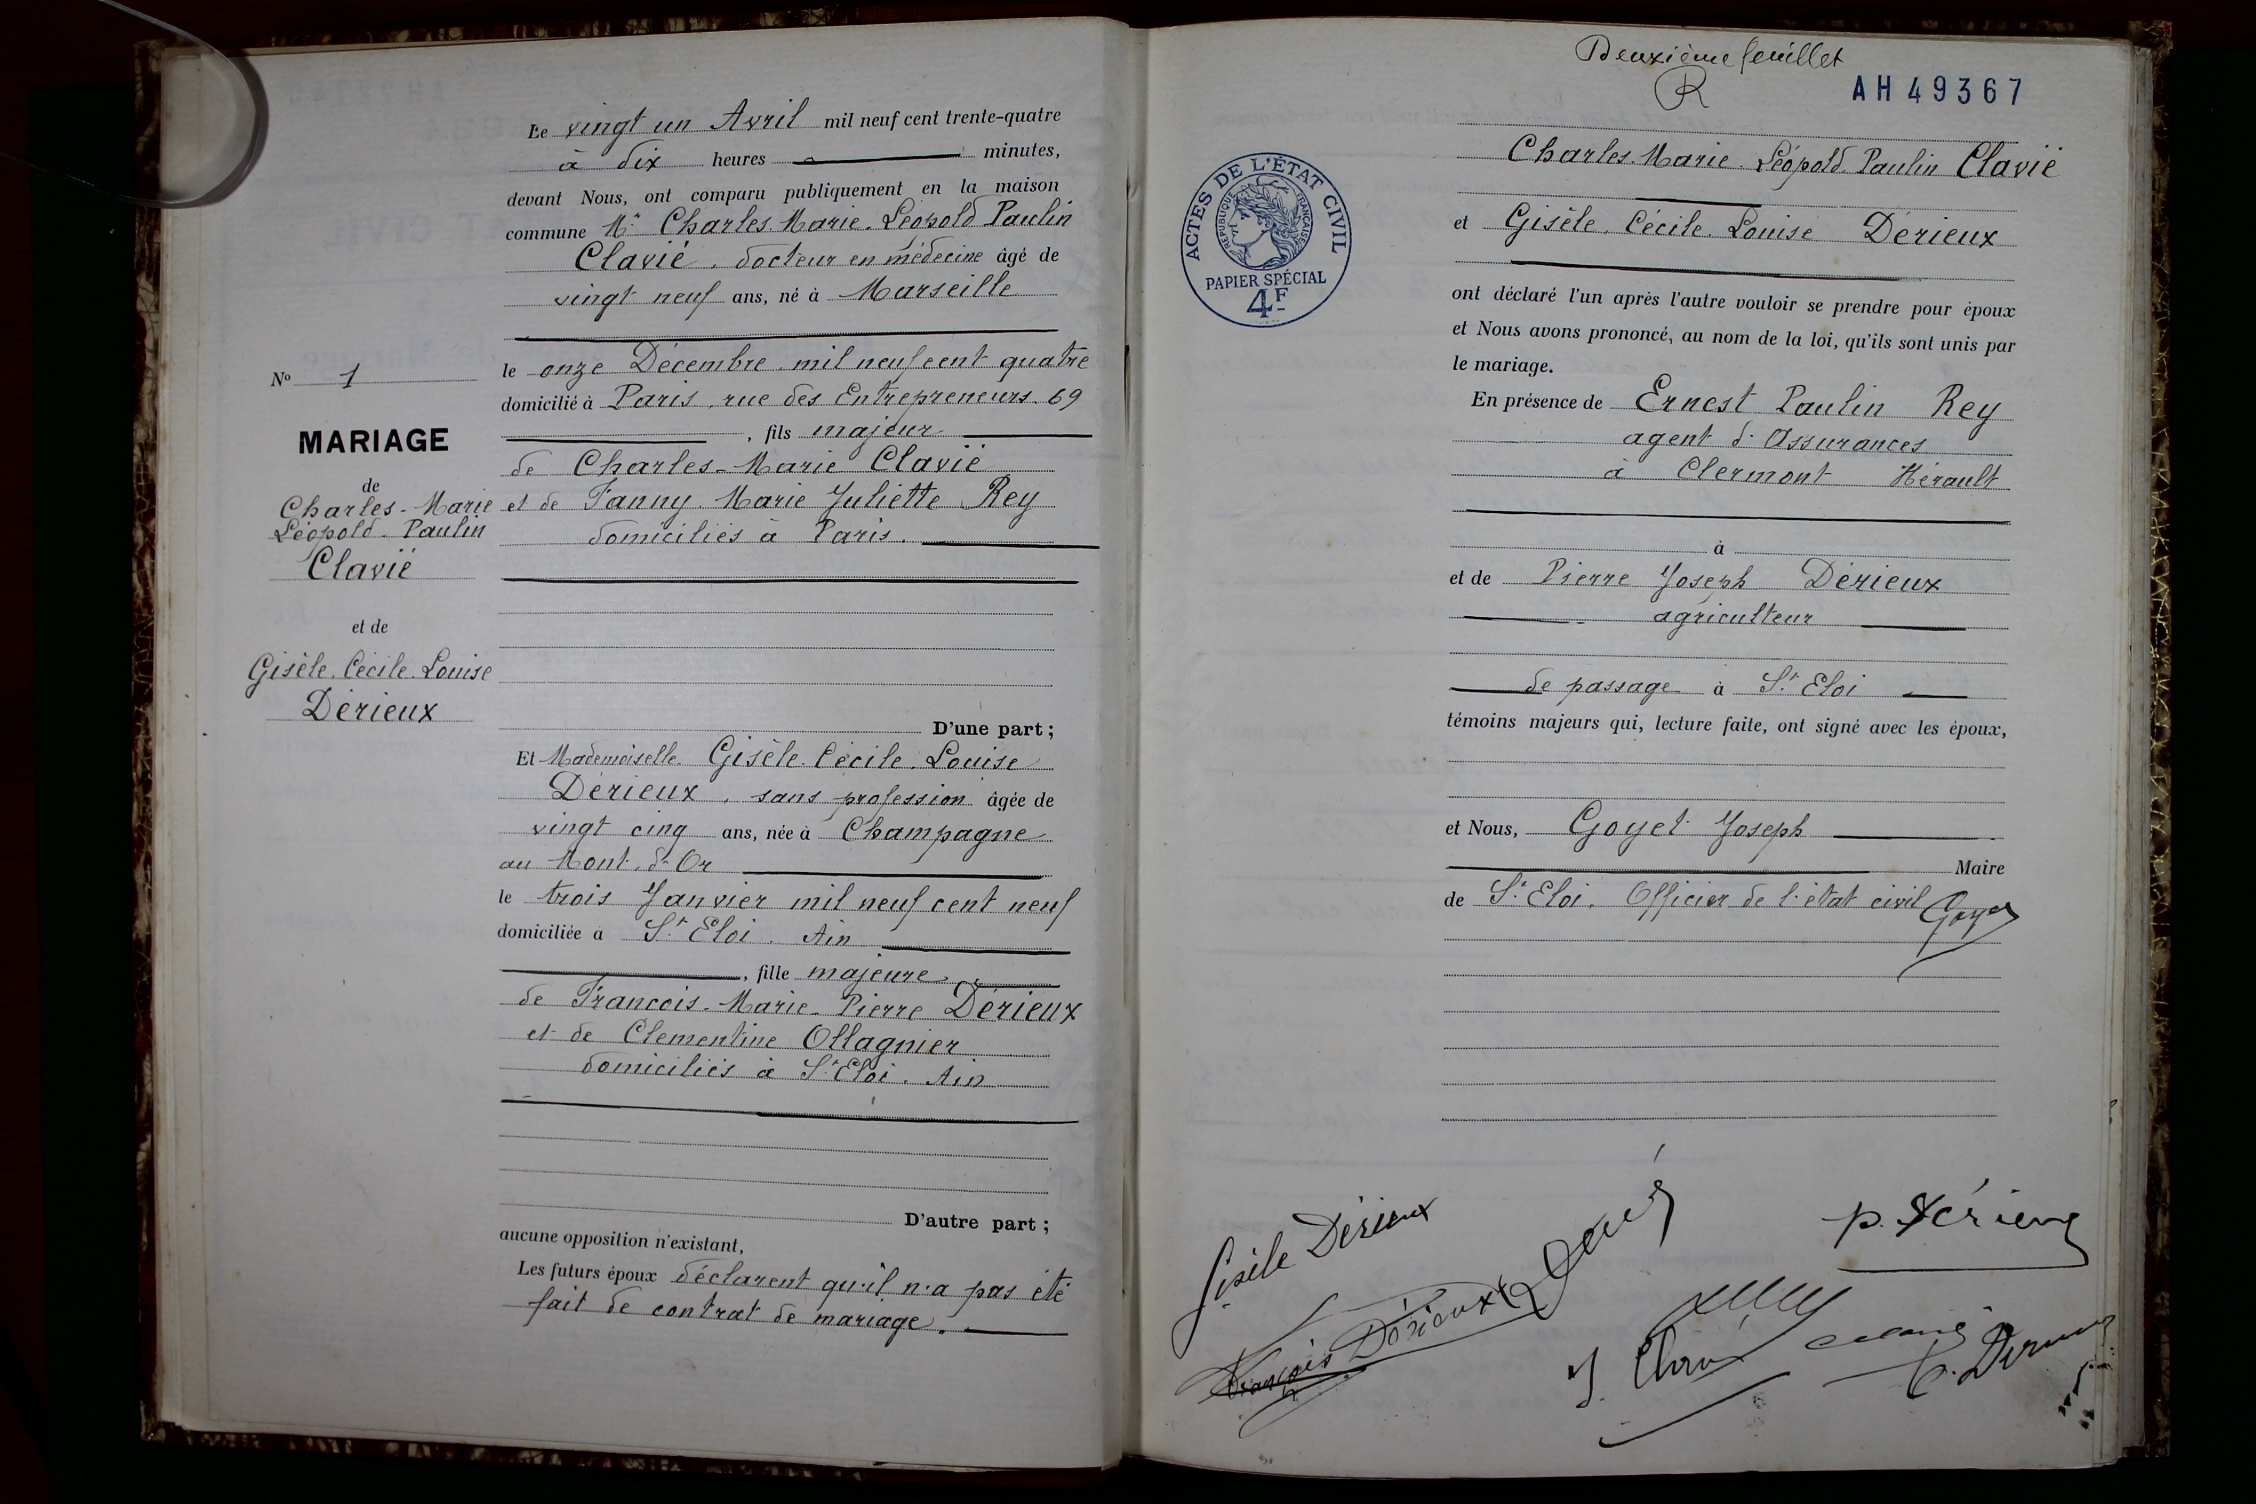 Le vingt un Avril mil neuf cent trente-quatre
à dix heures minutes,
devant Nous, ont comparu publiquement en la maison
commune Mr Charles. Marie. Léopold Paulin
Clavié. docteur en médecine âgé de
vingt neuf ans, né à Marseille
le onze Décembre. mil neuf cent quatre
domicilié à Paris. rue des Entrepreneurs. 69
, fils majeur
de Charles-Marie Clavié
et de Fanny. Marie Juliette Rey
domiciliés à Paris.
D'une part;
Et Mademoiselle. Gisèle. Cécile. Louise
Dérieux. sans profession âgée de
vingt cinq ans, née à Champagne
au Mont. d'Or
le trois Janvier mil neuf cent neuf
domiciliée à St Eloi. Ain
, fille majeure.
de Francois. Marie. Pierre Dérieux
et de Clementine Ollagnier
domiciliés à St Eloi. Ain
D'autre part;
aucune opposition n'existant,
Les futurs époux déclarent qu'il n'a pas été
fait de contrat de mariage.
No 1
MARIAGE
de
Charles-Marie
Léopold. Paulin
Clavié
et de
Gisèle. Cécile. Louise
Dérieux
Deuxième feuillet
R
AH 49367
ACTES DE L'ÉTAT CIVIL
RÉPUBLIQUE FRANÇAISE
PAPIER SPÉCIAL
4F
Charles. Marie. Léopold. Paulin Clavié
et Gisèle. Cécile. Louise Dérieux
ont déclaré l'un après l'autre vouloir se prendre pour époux
et Nous avons prononcé, au nom de la loi, qu'ils sont unis par
le mariage.
En présence de Ernest Paulin Rey
agent d'Assurances
à Clermont Hérault
à
et de Pierre Joseph Dérieux
agriculteur
de passage à St Eloi
témoins majeurs qui, lecture faite, ont signé avec les époux,
et Nous, Goyet Joseph
Maire
de St Eloi. Officier de l'état civil
Goyet
Gisèle Dérieux
P. Dérieux
François Dérieux
J. Clavié
C. Dérieux